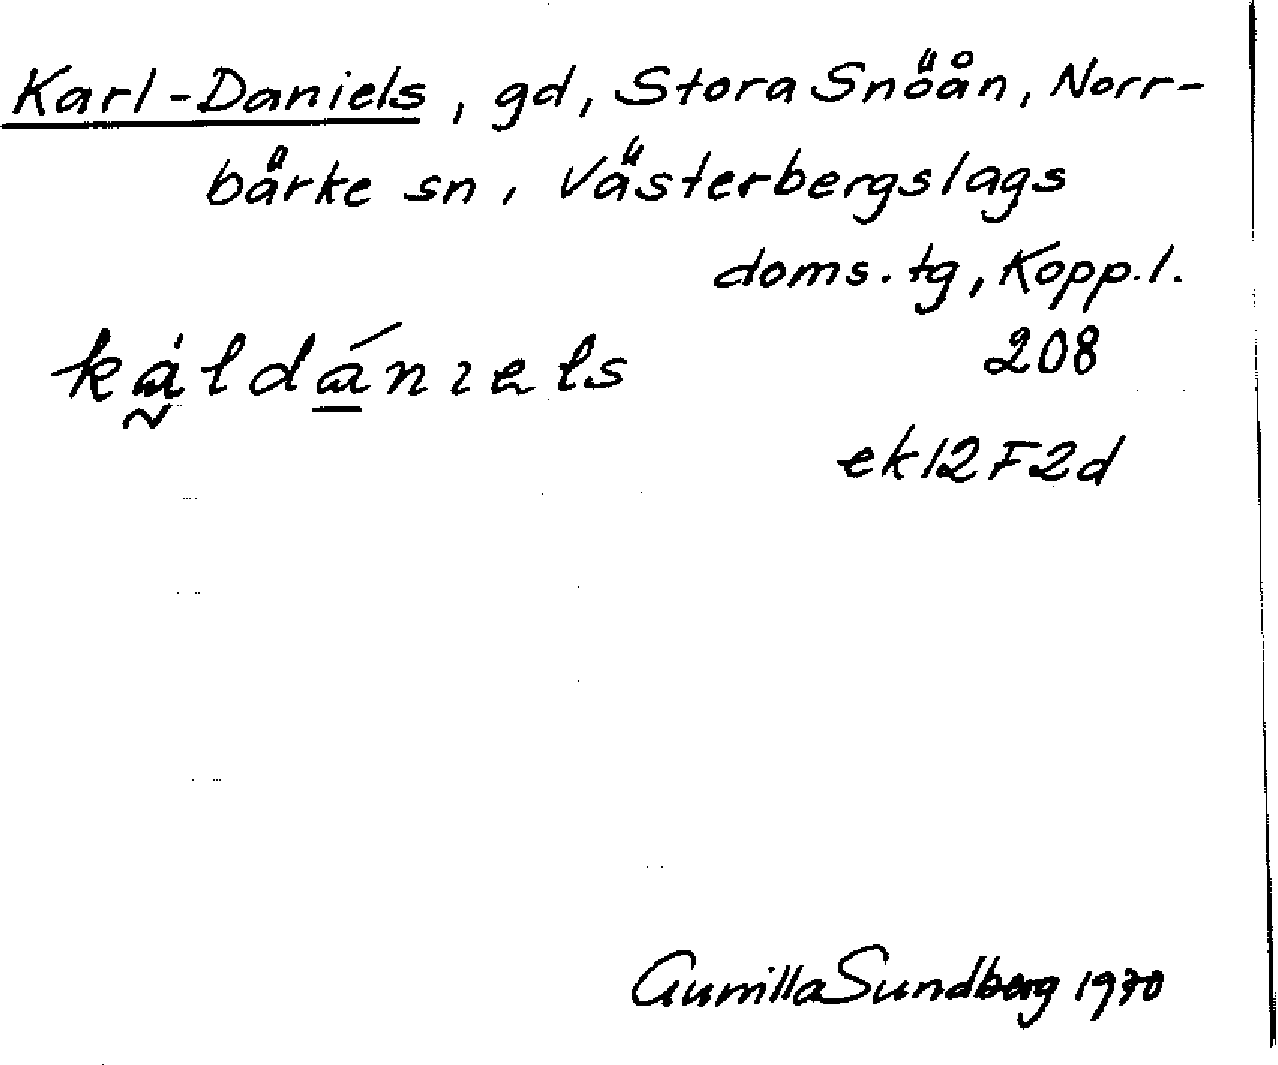 Karl-Daniels, gd, Stora Snöån, Norr-
bärke sn, Västerbergslags
doms. tg, Kopp. l.
208
ek12F2d
Gunilla Sundberg 1970